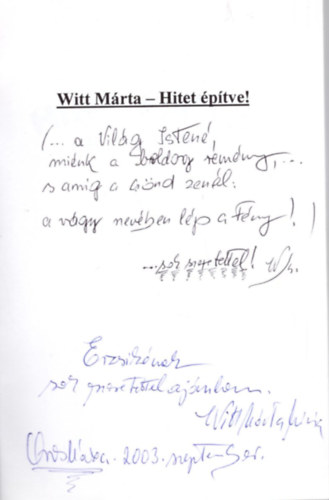 Witt Márta – Hitet építve!
(... a Világ Istené,
miénk a boldog remény, ...
s amíg a csönd zenél:
a vágy nevében lép a Fény!)
... sok szeretettel!
Erzsikének
sok szeretettel ajánlom.
Witt Márta
Orosháza. 2003. szeptember.